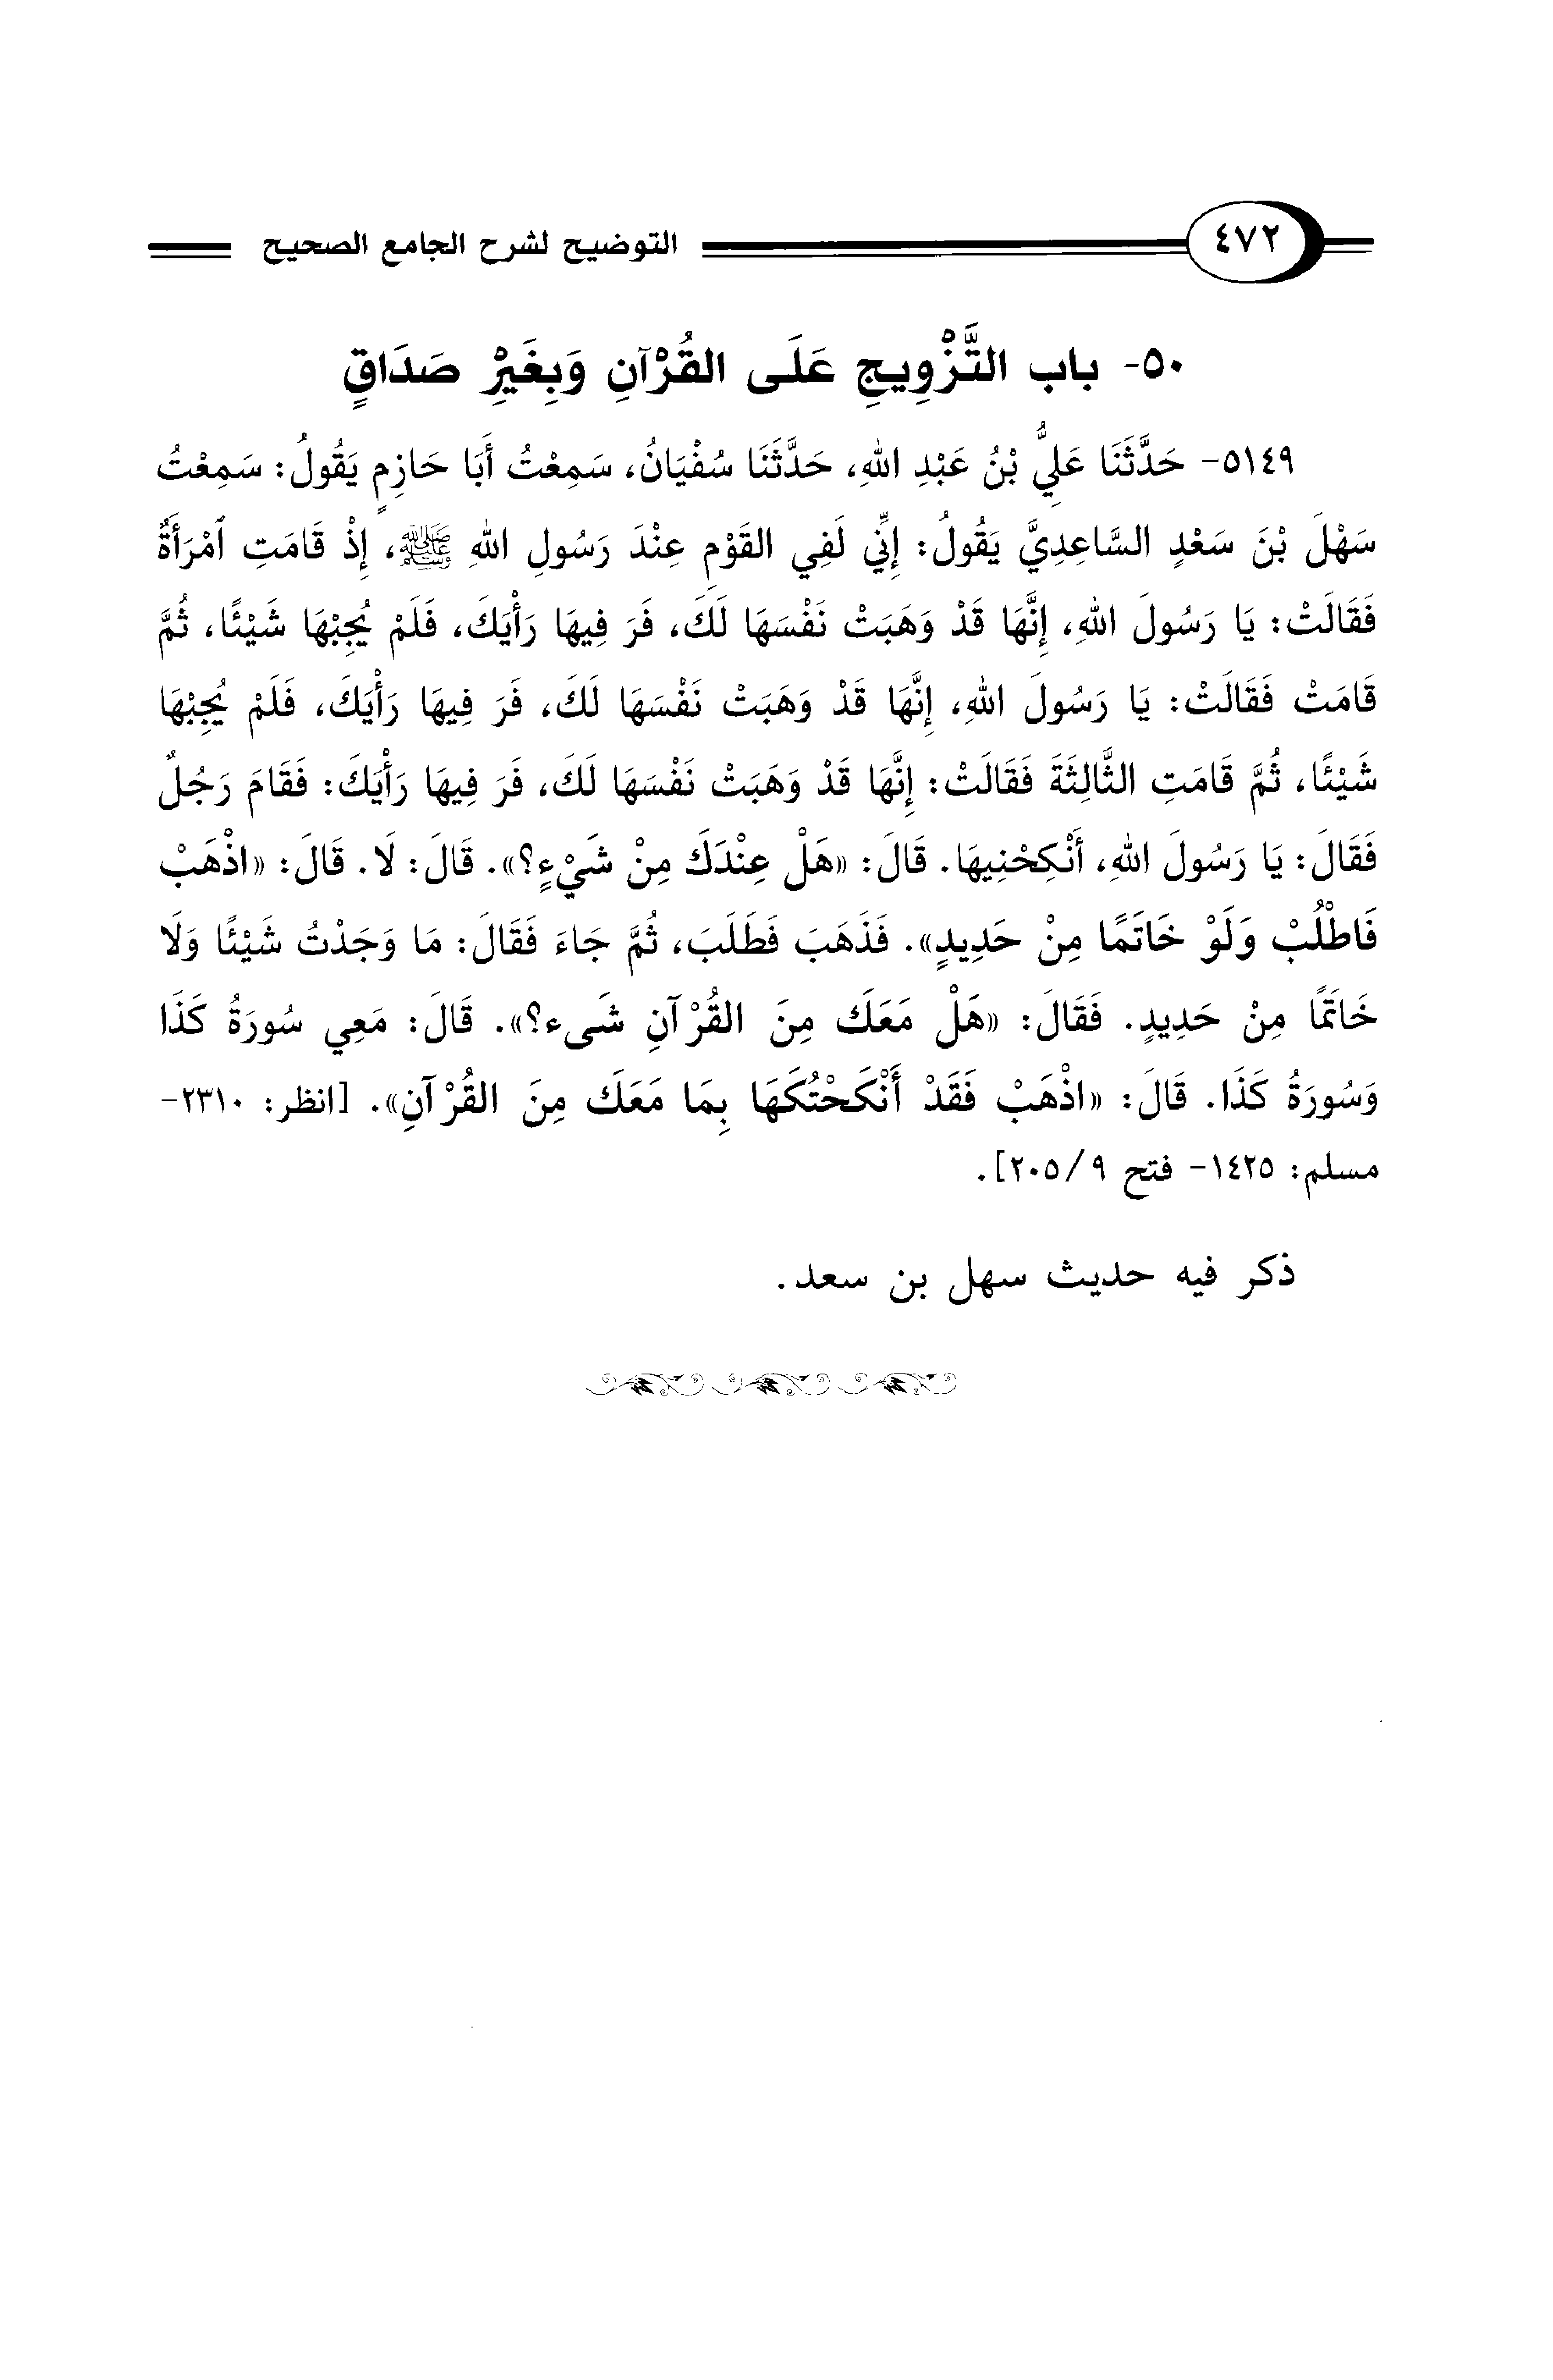 ٤٧٢ التوضيح لشرح الجامع الصحيح
٥٠- باب التَّزْوِيجِ عَلَى القُرْآنِ وَبِغَيْرِ صَدَاقٍ
٥١٤٩- حَدَّثَنَا عَلِيُّ بْنُ عَبْدِ اللهِ، حَدَّثَنَا سُفْيَانُ، سَمِعْتُ أَبَا حَازِمٍ يَقُولُ: سَمِعْتُ
سَهْلَ بْنَ سَعْدٍ السَّاعِدِيَّ يَقُولُ: إِنِّي لَفِي القَوْمِ عِنْدَ رَسُولِ اللهِ ﷺ، إِذْ قَامَتِ ٱمْرَأَةٌ
فَقَالَتْ: يَا رَسُولَ اللهِ، إِنَّهَا قَدْ وَهَبَتْ نَفْسَهَا لَكَ، فَرَ فِيهَا رَأْيَكَ، فَلَمْ يُجِبْهَا شَيْئًا، ثُمَّ
قَامَتْ فَقَالَتْ: يَا رَسُولَ اللهِ، إِنَّهَا قَدْ وَهَبَتْ نَفْسَهَا لَكَ، فَرَ فِيهَا رَأْيَكَ، فَلَمْ يُجِبْهَا
شَيْئًا، ثُمَّ قَامَتِ الثَّالِثَةَ فَقَالَتْ: إِنَّهَا قَدْ وَهَبَتْ نَفْسَهَا لَكَ، فَرَ فِيهَا رَأْيَكَ: فَقَامَ رَجُلٌ
فَقَالَ: يَا رَسُولَ اللهِ، أَنْكِحْنِيهَا. قَالَ: «هَلْ عِنْدَكَ مِنْ شَيْءٍ؟». قَالَ: لَا. قَالَ: «اذْهَبْ
فَاطْلُبْ وَلَوْ خَاتَمًا مِنْ حَدِيدٍ». فَذَهَبَ فَطَلَبَ، ثُمَّ جَاءَ فَقَالَ: مَا وَجَدْتُ شَيْئًا وَلَا
خَاتَمًا مِنْ حَدِيدٍ. فَقَالَ: «هَلْ مَعَكَ مِنَ القُرْآنِ شَىء؟». قَالَ: مَعِي سُورَةُ كَذَا
وَسُورَةُ كَذَا. قَالَ: «اذْهَبْ فَقَدْ أَنْكَحْتُكَهَا بِمَا مَعَكَ مِنَ القُرْآنِ». [انظر: ٢٣١٠-
مسلم: ١٤٢٥- فتح ٩/ ٢٠٥].
ذكر فيه حديث سهل بن سعد.